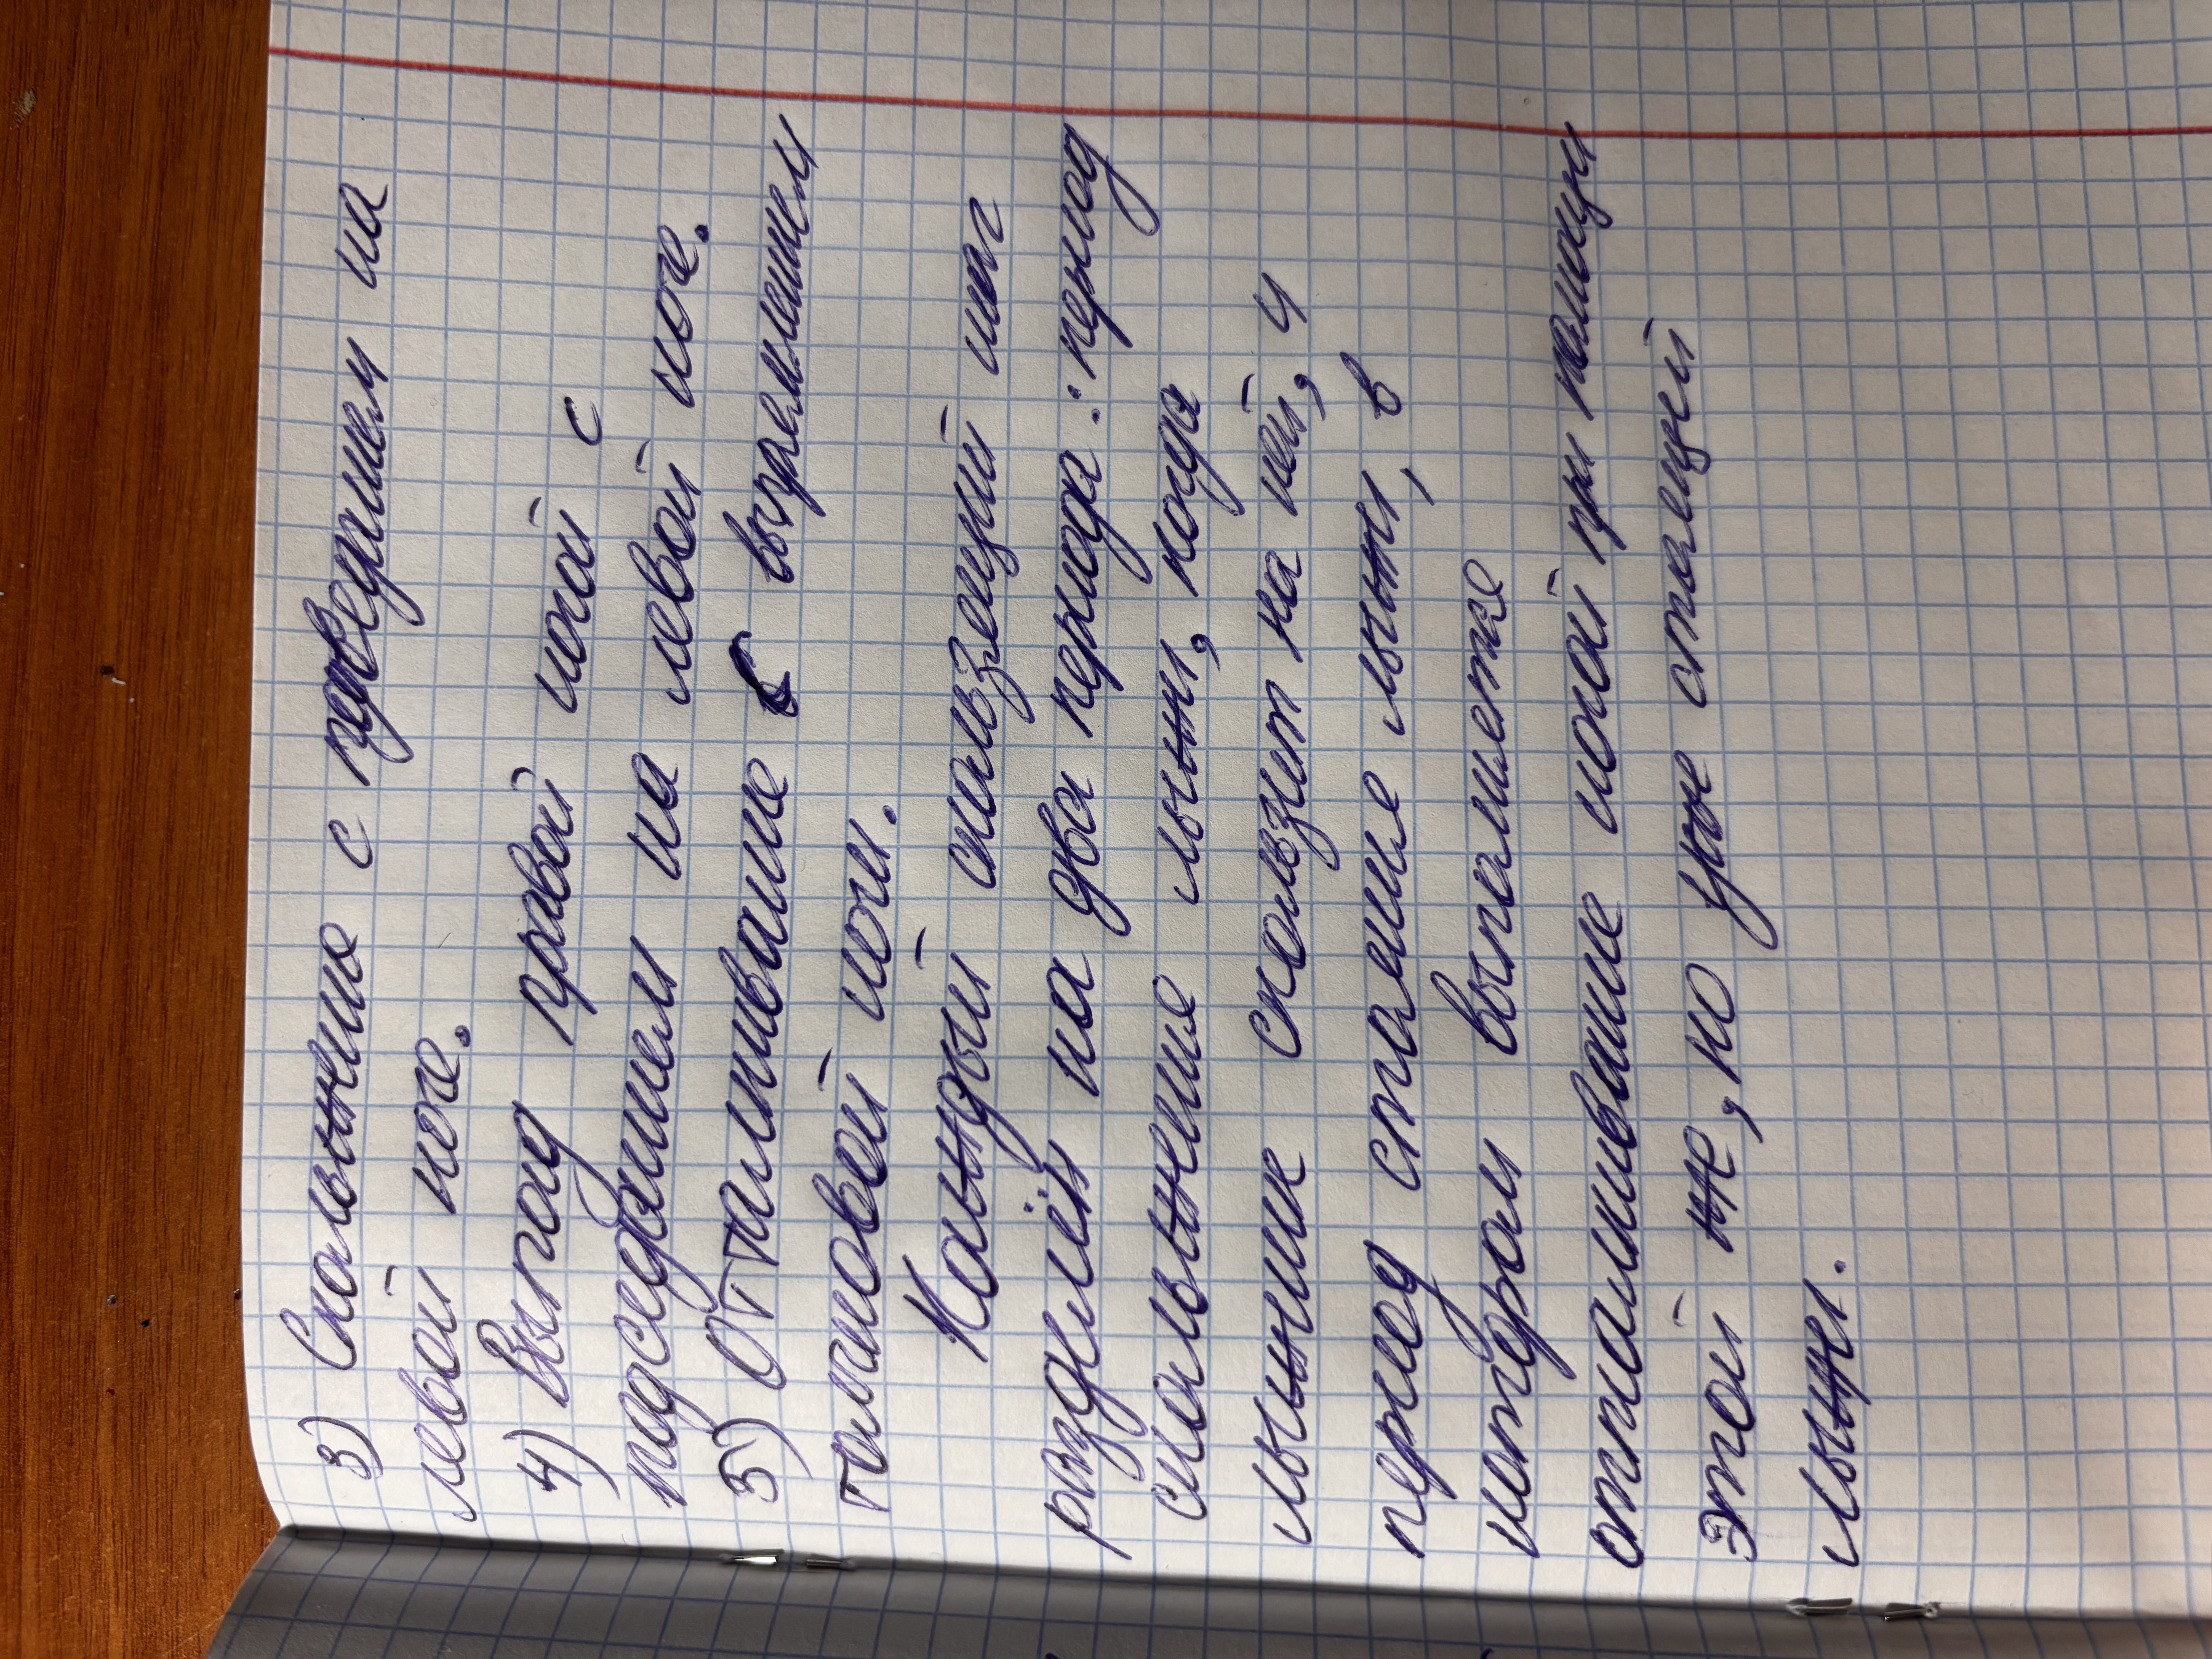 3) Скольжение с приведением на
левой ноге.
4) Выпад правой ногой с
подседанием на левой ноге.
5) Отталкивание с выпрямлением
толчковой ноги.
Каждый скользящий шаг
разделён на два периода: период
скольжения лыжи, когда
лыжник скользит на ней, и
период стояния лыжи, в
котором выполняется
отталкивание ногой при помощи
этой же, но уже стоящей
лыжи.